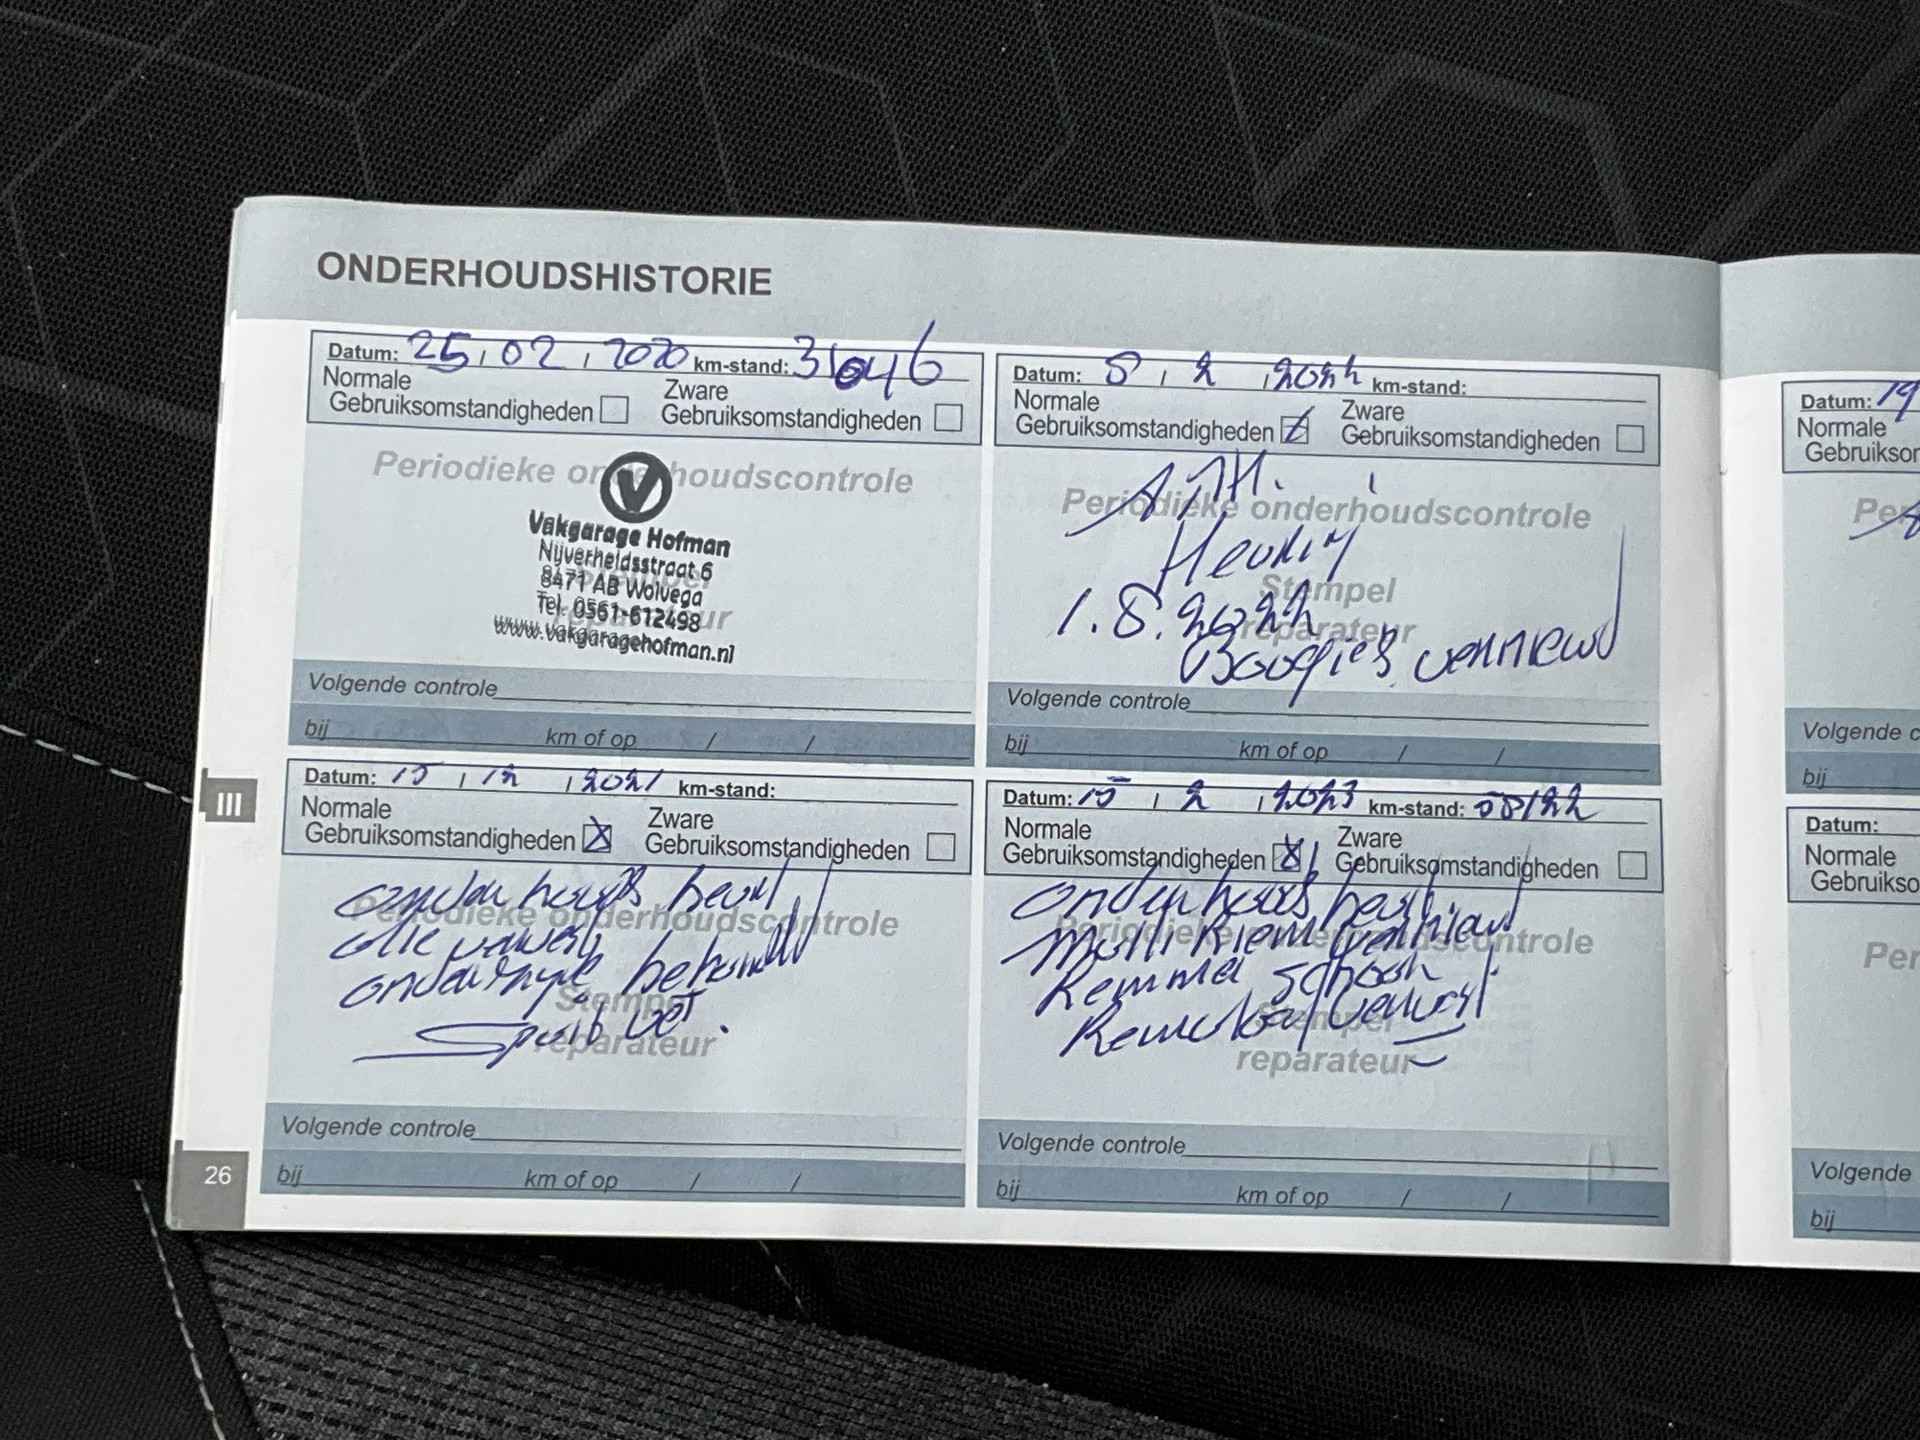 ONDERHOUDSHISTORIE
Datum: 25 / 02 / 2020 km-stand: 31046
Normale Gebruiksomstandigheden
Zware Gebruiksomstandigheden
Periodieke onderhoudscontrole
Vakgarage Hofman
Nijverheidsstraat 6
8471 AB Wolvega
Tel. 0561-612498
www.vakgaragehofman.nl
Volgende controle
bij km of op / /
Datum: 8 / 2 / 2022 km-stand:
Normale Gebruiksomstandigheden
Zware Gebruiksomstandigheden
Periodieke onderhoudscontrole
Stempel
reparateur
1.8.2022
Bougies vernieuwd
Volgende controle
bij km of op / /
III
Datum: 15 / 12 / 2021 km-stand:
Normale Gebruiksomstandigheden
Zware Gebruiksomstandigheden
Periodieke onderhoudscontrole
onderhouds beurt
olie ververst
behandeld
Stempel
reparateur
Volgende controle
bij km of op / /
Datum: 15 / 2 / 2023 km-stand: 58122
Normale Gebruiksomstandigheden
Zware Gebruiksomstandigheden
Periodieke onderhoudscontrole
onderhouds beurt
Multi Riem vernieuwd
Remmen schoon
ververst
Stempel
reparateur
Volgende controle
bij km of op / /
26
Datum: 19
Normale
Volgende
bij
Datum:
Normale
Volgende
bij